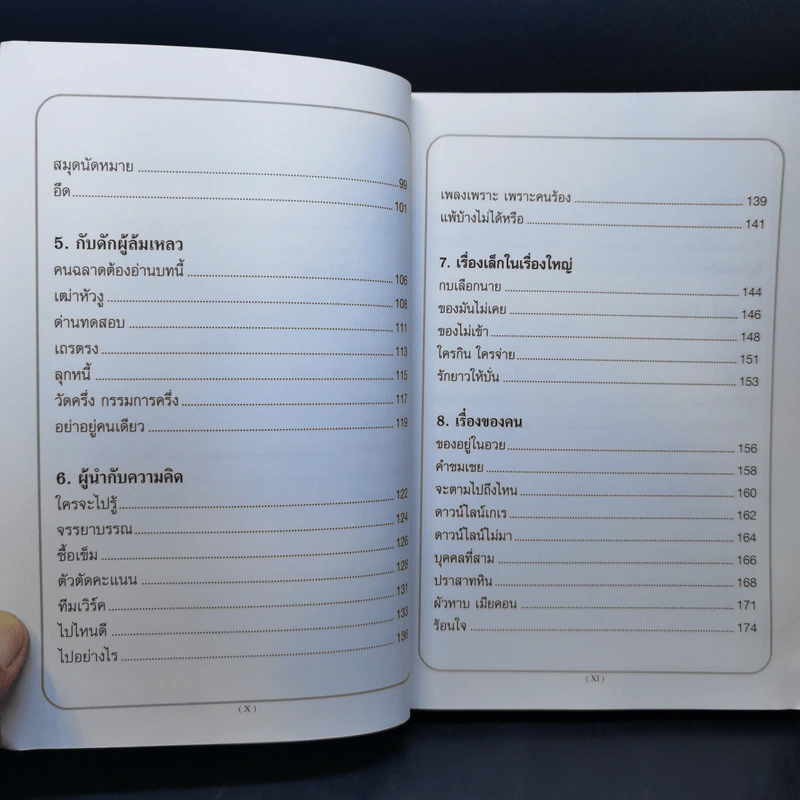 สมุดนัดหมาย 99
อึด 101
5. กับดักผู้ล้มเหลว
คนฉลาดต้องอ่านบทนี้ 106
เฒ่าหัวงู 108
ด่านทดสอบ 111
เถรตรง 113
ลูกหนี้ 115
วัดครึ่ง กรรมการครึ่ง 117
อย่าอยู่คนเดียว 119
6. ผู้นำกับความคิด
ใครจะไปรู้ 122
จรรยาบรรณ 124
ซื้อเข็ม 126
ตัวตัดคะแนน 128
ทีมเวิร์ค 131
ไปไหนดี 133
ไปอย่างไร 136
( X )
เพลงเพราะ เพราะคนร้อง 139
แพ้บ้างไม่ได้หรือ 141
7. เรื่องเล็กในเรื่องใหญ่
กบเลือกนาย 144
ของมันไม่เคย 146
ของไม่เข้า 148
ใครกิน ใครจ่าย 151
รักยาวให้บั่น 153
8. เรื่องของคน
ของอยู่ในอวย 156
คำชมเชย 158
จะตามไปถึงไหน 160
ดาวน์ไลน์เกเร 162
ดาวน์ไลน์ไม่มา 164
บุคคลที่สาม 166
ปราสาทหิน 168
ผัวหาบ เมียคอน 171
ร้อนใจ 174
( XI )